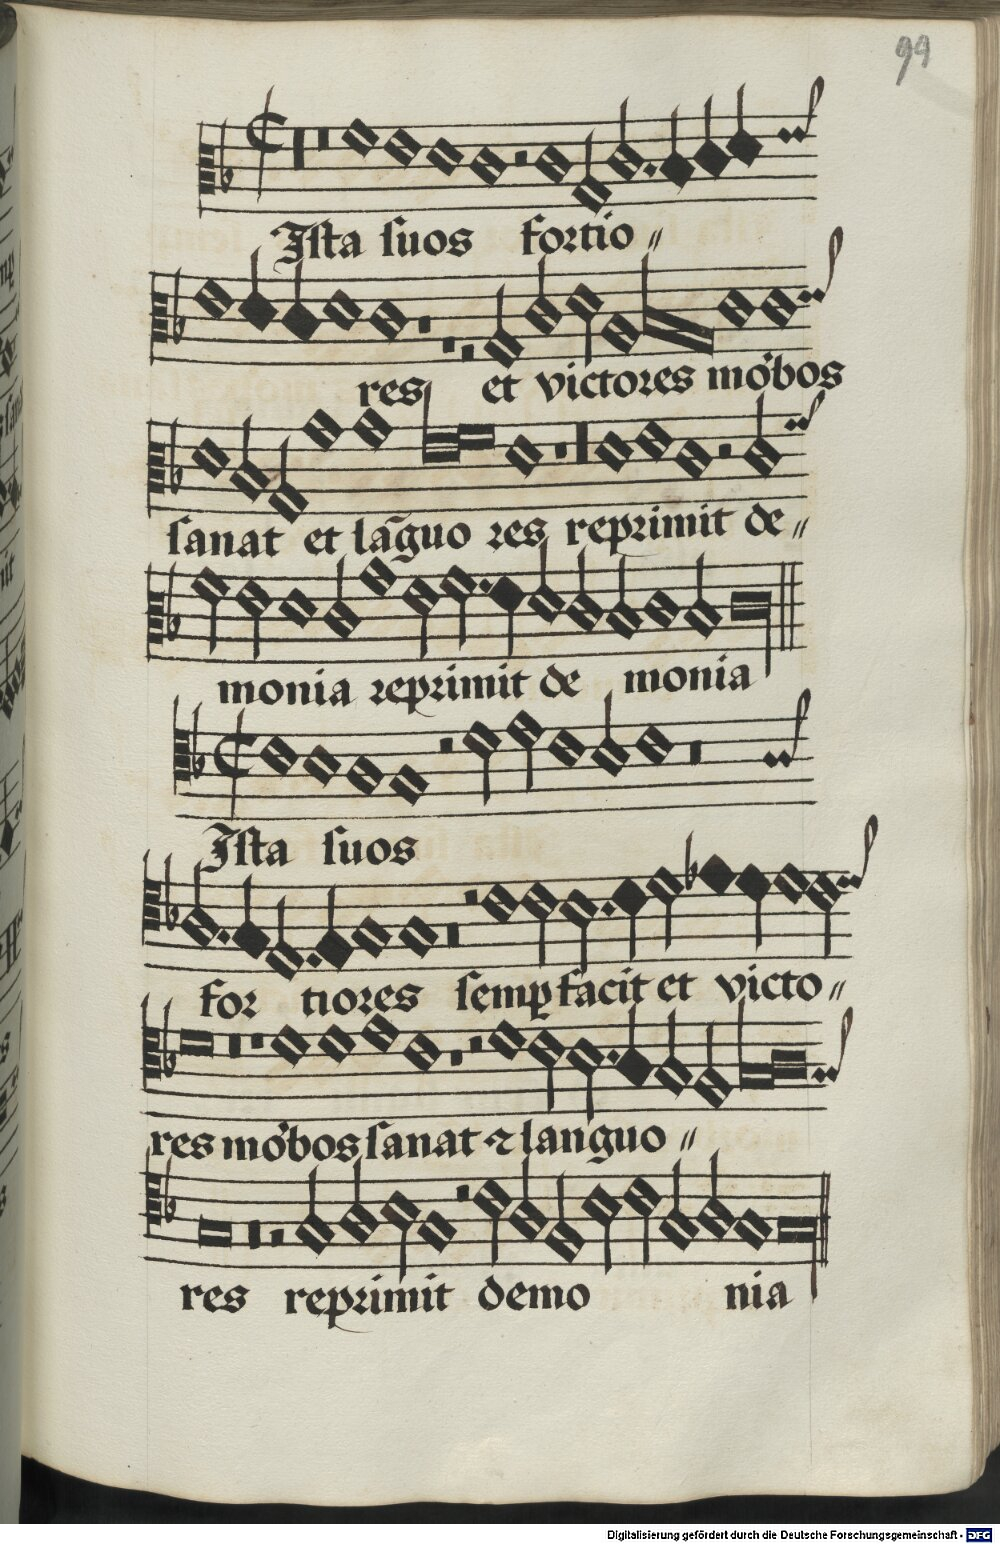 99
Ista suos fortio〃
res et victores mõbos
sanat et lãguo res reprimit de〃
monia reprimit de monia
Ista suos
for tiores semꝑ facit et victo〃
res mõbos sanat ⁊ languo〃
res reprimit demo nia
Digitalisierung gefördert durch die Deutsche Forschungsgemeinschaft - DFG